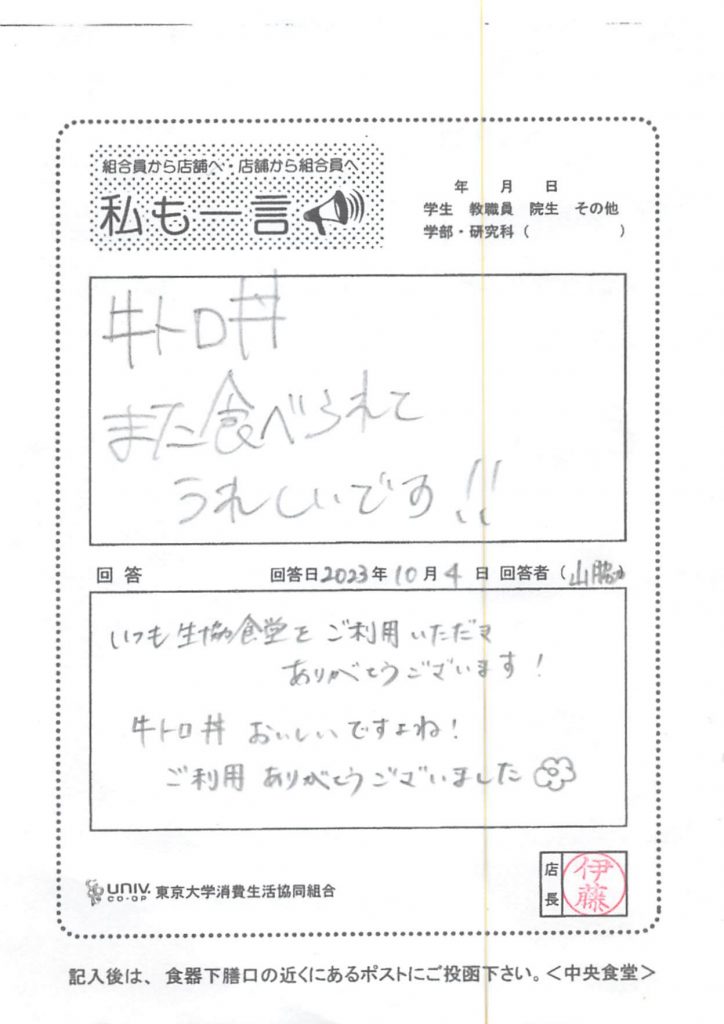 組合員から店舗へ・店舗から組合員へ
私も一言
年 月 日
学生 教職員 院生 その他
学部・研究科（ ）
牛トロ丼
また食べられて
うれしいです!!
回答
回答日2023年10月4日 回答者（山脇）
いつも生協食堂をご利用いただき
ありがとうございます!
牛トロ丼 おいしいですよね!
ご利用ありがとうございました
UNIV. CO-OP 東京大学消費生活協同組合
店長 伊藤
記入後は、食器下膳口の近くにあるポストにご投函下さい。＜中央食堂＞